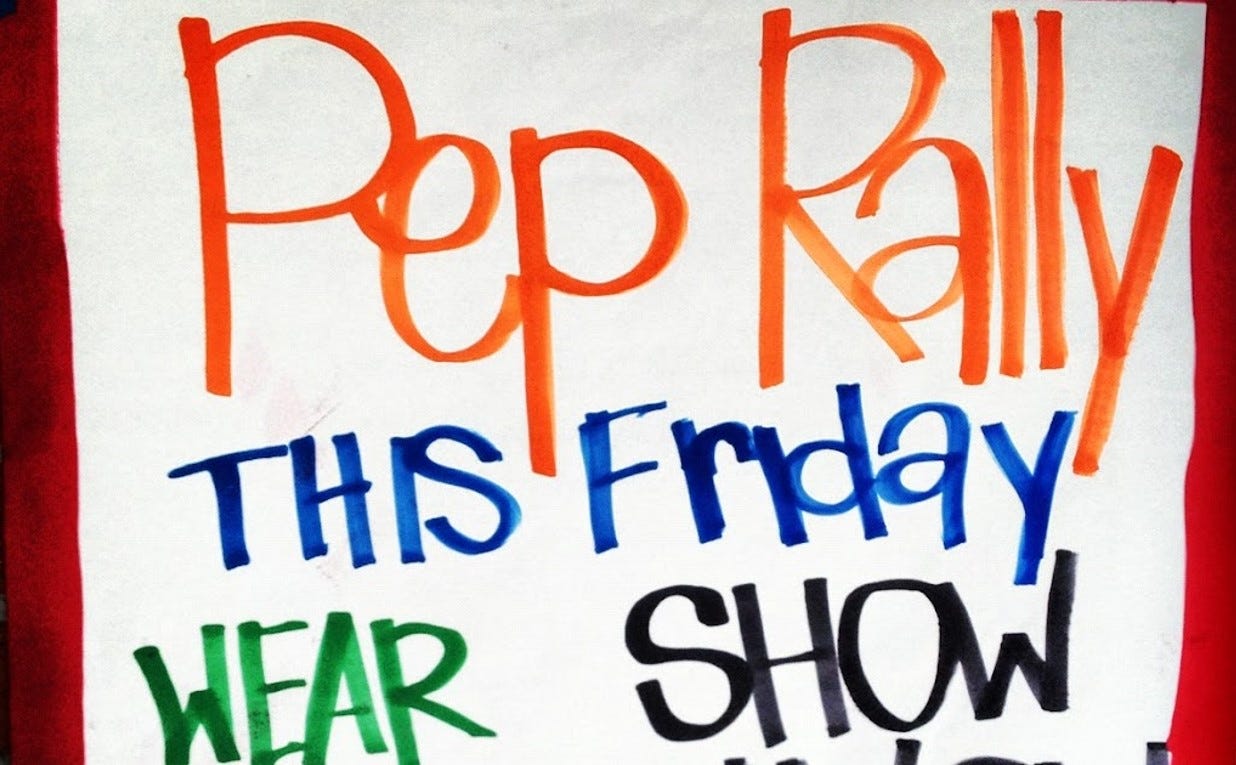 Pep Rally
THIS Friday
WEAR
SHOW